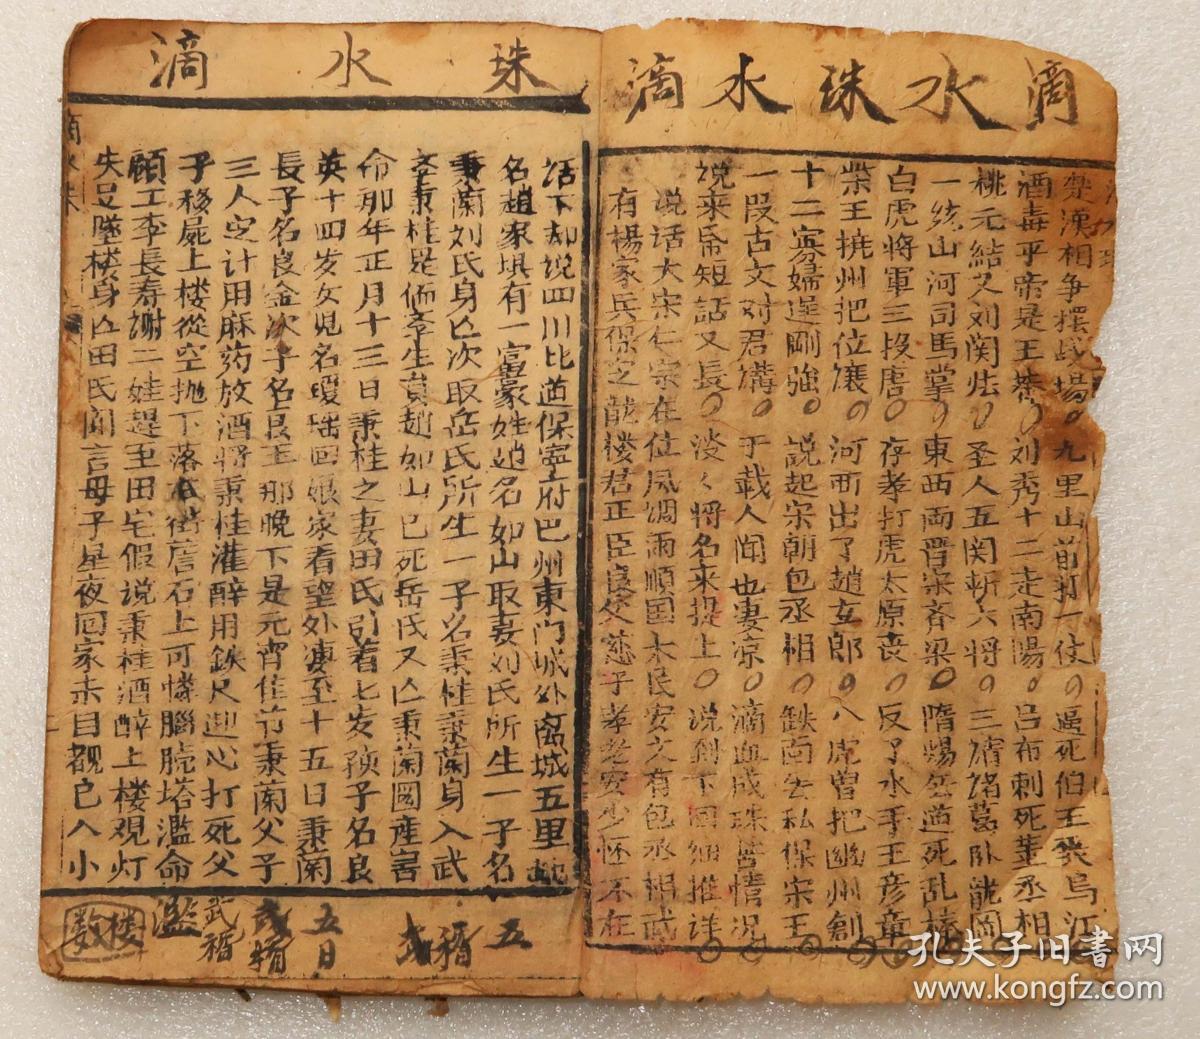 滴水珠水滴
楚漢相争摆战場 九里山前打一仗 逼死伯王丧烏江
酒毒平帝是王莽 刘秀十二走南陽 吕布刺死董丞相
桃元结义刘関张 圣人五関斩六将 三请诸葛卧龍岡
一统山河司馬掌 東西両晋宋斉梁 隋煬無道死乱
白虎将軍三投唐 存孝打虎太原丧 反了水手王彦章
柴王挠州把位讓 河西出了趙玄郎 八虎曽把幽州創
十二寡婦逞剛強 説起宋朝包丞相 鉄面無私保宋王
一段古文对君講 于載人闻也妻凉 滴血成珠苦情况
説来话短話又長 淡淡将名来提上 说到下回細推详
说话大宋仁宗在位風调雨順国太民安文有包丞相武
有楊家兵保定龍楼君正臣良父慈子孝老安少怀不在
珠水滴
话下却说四川比道保寧府巴州東门城外离城五里
名趙家垻有一富豪姓趙名如山取妻刘氏所生一子名
秉蘭刘氏身亡次取岳氏所生一子名秉桂秉蘭身入武
孝秉桂是個孝生員趙如山已死岳氏又亡秉蘭圖産害
命那年正月十三日秉桂之妻田氏引着七岁孩子名良
英十四岁女児名瑷瑶回娘家看望外凄至十五日秉蘭
長子名良金次子名良玉那晚下是元宵佳节秉蘭父子
三人定计用麻药放酒将秉桂灌醉用鉄尺迎心打死父
子移屍上楼從空抛下落在街簷石上可憐腦脘塔濫命
顧工李長寿謝二娃趕至田宅假说秉桂酒醉上楼观灯
失足墜楼身亡田氏闻言母子星夜回家未目覩已入小
滴水珠
五
五日
武
濫
楼
数
孔夫子旧書网
www.kongfz.com